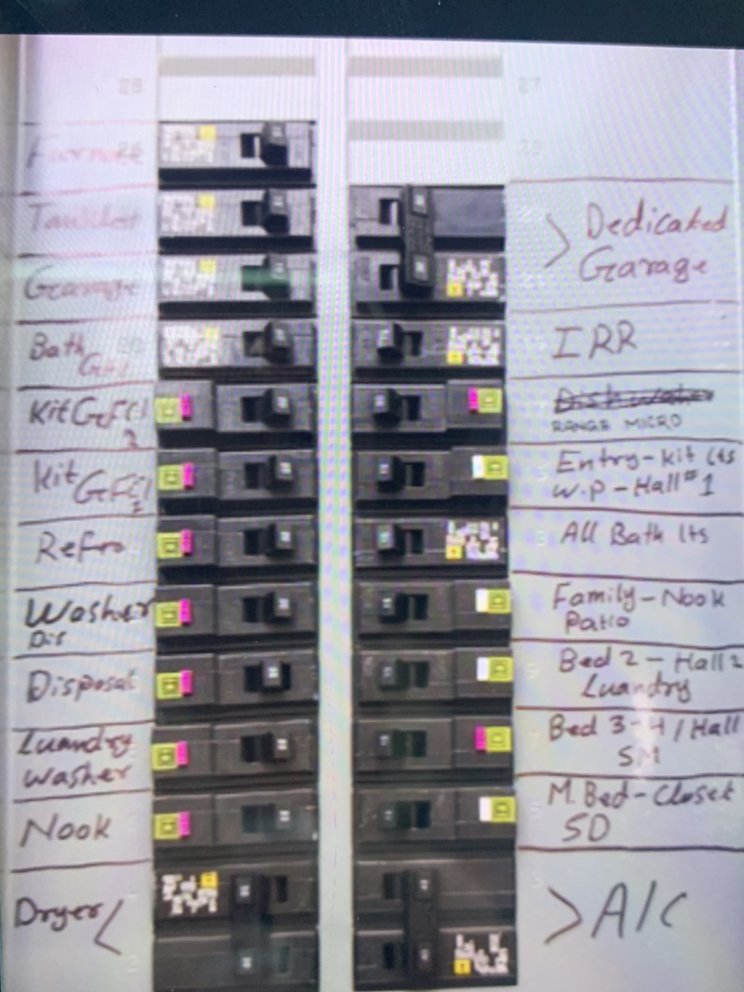 28
27
Furnace
25
Dedicated
Garage
Garage
Bath
GFI
IRR
Kit GFCI
2
Dishwasher
RANGE MICRO
Kit GFCI
Entry-Kit Lts
W.P-Hall #1
Refrig
All Bath Lts
Washer
Dis
Family-Nook
Patio
Disposal
Bed 2-Hall 2
Luandry
Luandry
Washer
Bed 3-4/Hall
SM
Nook
M.Bed-Closet
SD
Dryer
A/C